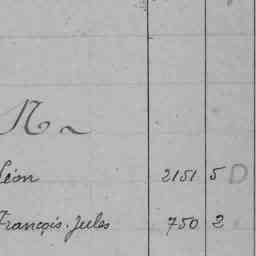 N
Léon 2151 5 D
François-Jules 750 2